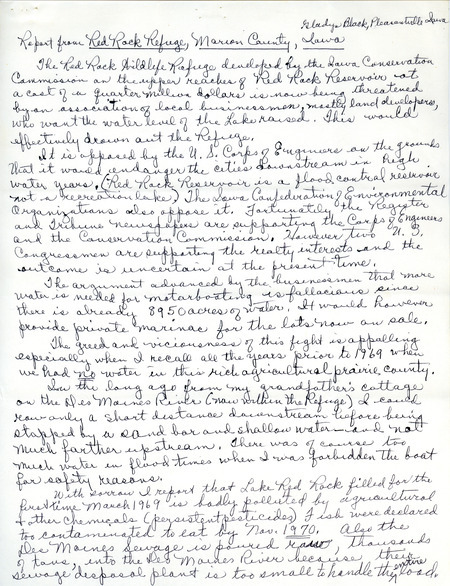 Gladys Black, Pleasantville Iowa
Report from Red Rock Refuge, Marion County, Iowa
The Red Rock Wildlife Refuge developed by the Iowa Conservation
Commission on the upper reaches of Red Rock Reservoir at
a cost of a quarter million dollars is now being threatened
by an association of local businessmen, mostly land developers,
who want the water level of the Lake raised. This would
effectively drown out the Refuge.
It is opposed by the U.S. Corps of Engineers on the grounds
that it would endanger the cities downstream in high
water years. (Red Rock Reservoir is a flood control reservoir
not a recreation lake) The Iowa Confederation of Environmental
Organizations also oppose it. Fortunately the Register
and Tribune newspapers are supporting the Corps of Engineers
and the Conservation Commission. However two U.S.
Congressmen are supporting the realty interests and the
outcome is uncertain at the present time.
The argument advanced by the businessmen that more
water is needed for motorboating is fallacious since
there is already 8950 acres of water. It would however
provide private marinas for the lots now on sale.
The greed and viciousness of this fight is appalling
especially when I recall all the years prior to 1969 when
we had no water in this rich agricultural prairie county.
In the long ago from my grandfather's cottage
on the Des Moines River (now within the Refuge) I could
row only a short distance downstream before being
stopped by a sand bar and shallow water - and not
much farther upstream. There was of course too
much water in flood times when I was forbidden the boat
for safety reasons.
With sorrow I report that Lake Red Rock filled for the
first time March 1969 is badly polluted by agricultural
& other chemicals (persistent pesticides) Fish were declared
too contaminated to eat by Nov. 1970. Also the
Des Moines sewage is poured raw, thousands
of tons, into the Des Moines River because their
sewage disposal plant is too small to handle the entire load.